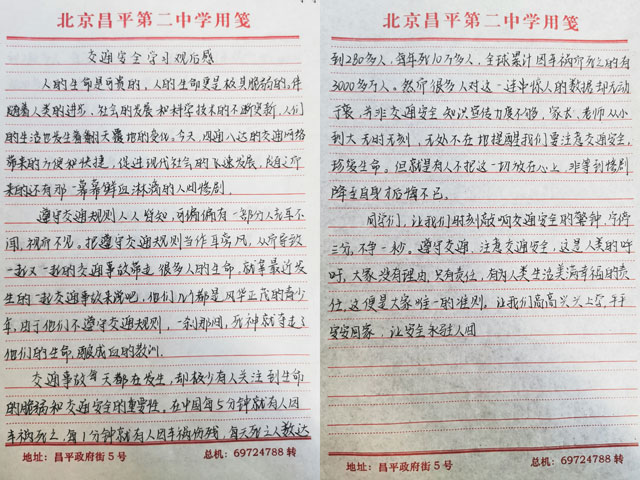 北京昌平第二中学用笺
交通安全学习观后感
人的生命是可贵的，人的生命更是极其脆弱的。伴
随着人类的进步，社会的发展和科学技术的不断更新，人们
的生活也发生着翻天覆地的变化。今天，四通八达的交通网络
带来的方便和快捷，促进现代社会的飞速发展，随之所
来的还有那一幕幕鲜血淋漓的人间惨剧。
遵守交通规则人人皆知，可偏偏有一部分人充耳不
闻，视所不见。把遵守交通规则当作耳旁风，从所导致
一起又一起的交通事故带走很多人的生命，就拿最近发
生的一起交通事故来说吧，他们几个都是风华正茂的青少
年，由于他们不遵守交通规则，一刹那间，死神就夺走了
他们的生命，酿成血的教训。
交通事故每天都在发生，却极少有人关注到生命
的脆弱和交通安全的重要性。在中国每5分钟就有人因
车祸死亡，每1分钟就有人因车祸伤残，每天死亡人数达
地址：昌平政府街5号 总机：69724788 转
北京昌平第二中学用笺
到280多人，每年死10万多人，全球累计因车祸所死亡的有
3000多万人。然所很多人对这一连串惊人的数据却无动
于衷，并非交通安全知识宣传力度不够，家长，老师从小
到大无时无刻，无处不在地提醒我们要注意交通安全，
珍爱生命。但就是有人不把这一切放在心上，非等到惨剧
降至自身才后悔不已。
同学们，让我们时刻敲响交通安全的警钟，宁停
三分，不争一秒。遵守交通，注意交通安全，这是人类的呼
吁，大家没有理由，只有责任，有为人类生活美满幸福的责
任，这便是大家唯一的准则。让我们高高兴兴上学，平平
安安回家；让安全永驻人间
地址：昌平政府街5号 总机：69724788 转